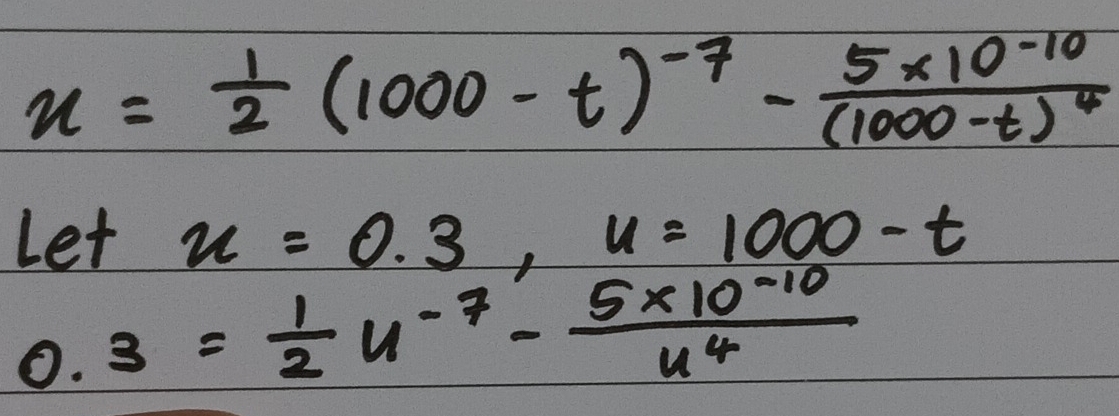 x = 1/2 (1000 - t)^-7 - (5 × 10^-10)/(1000 - t)^4
Let x = 0.3, u = 1000 - t
0.3 = 1/2 u^-7 - (5 × 10^-10)/u^4